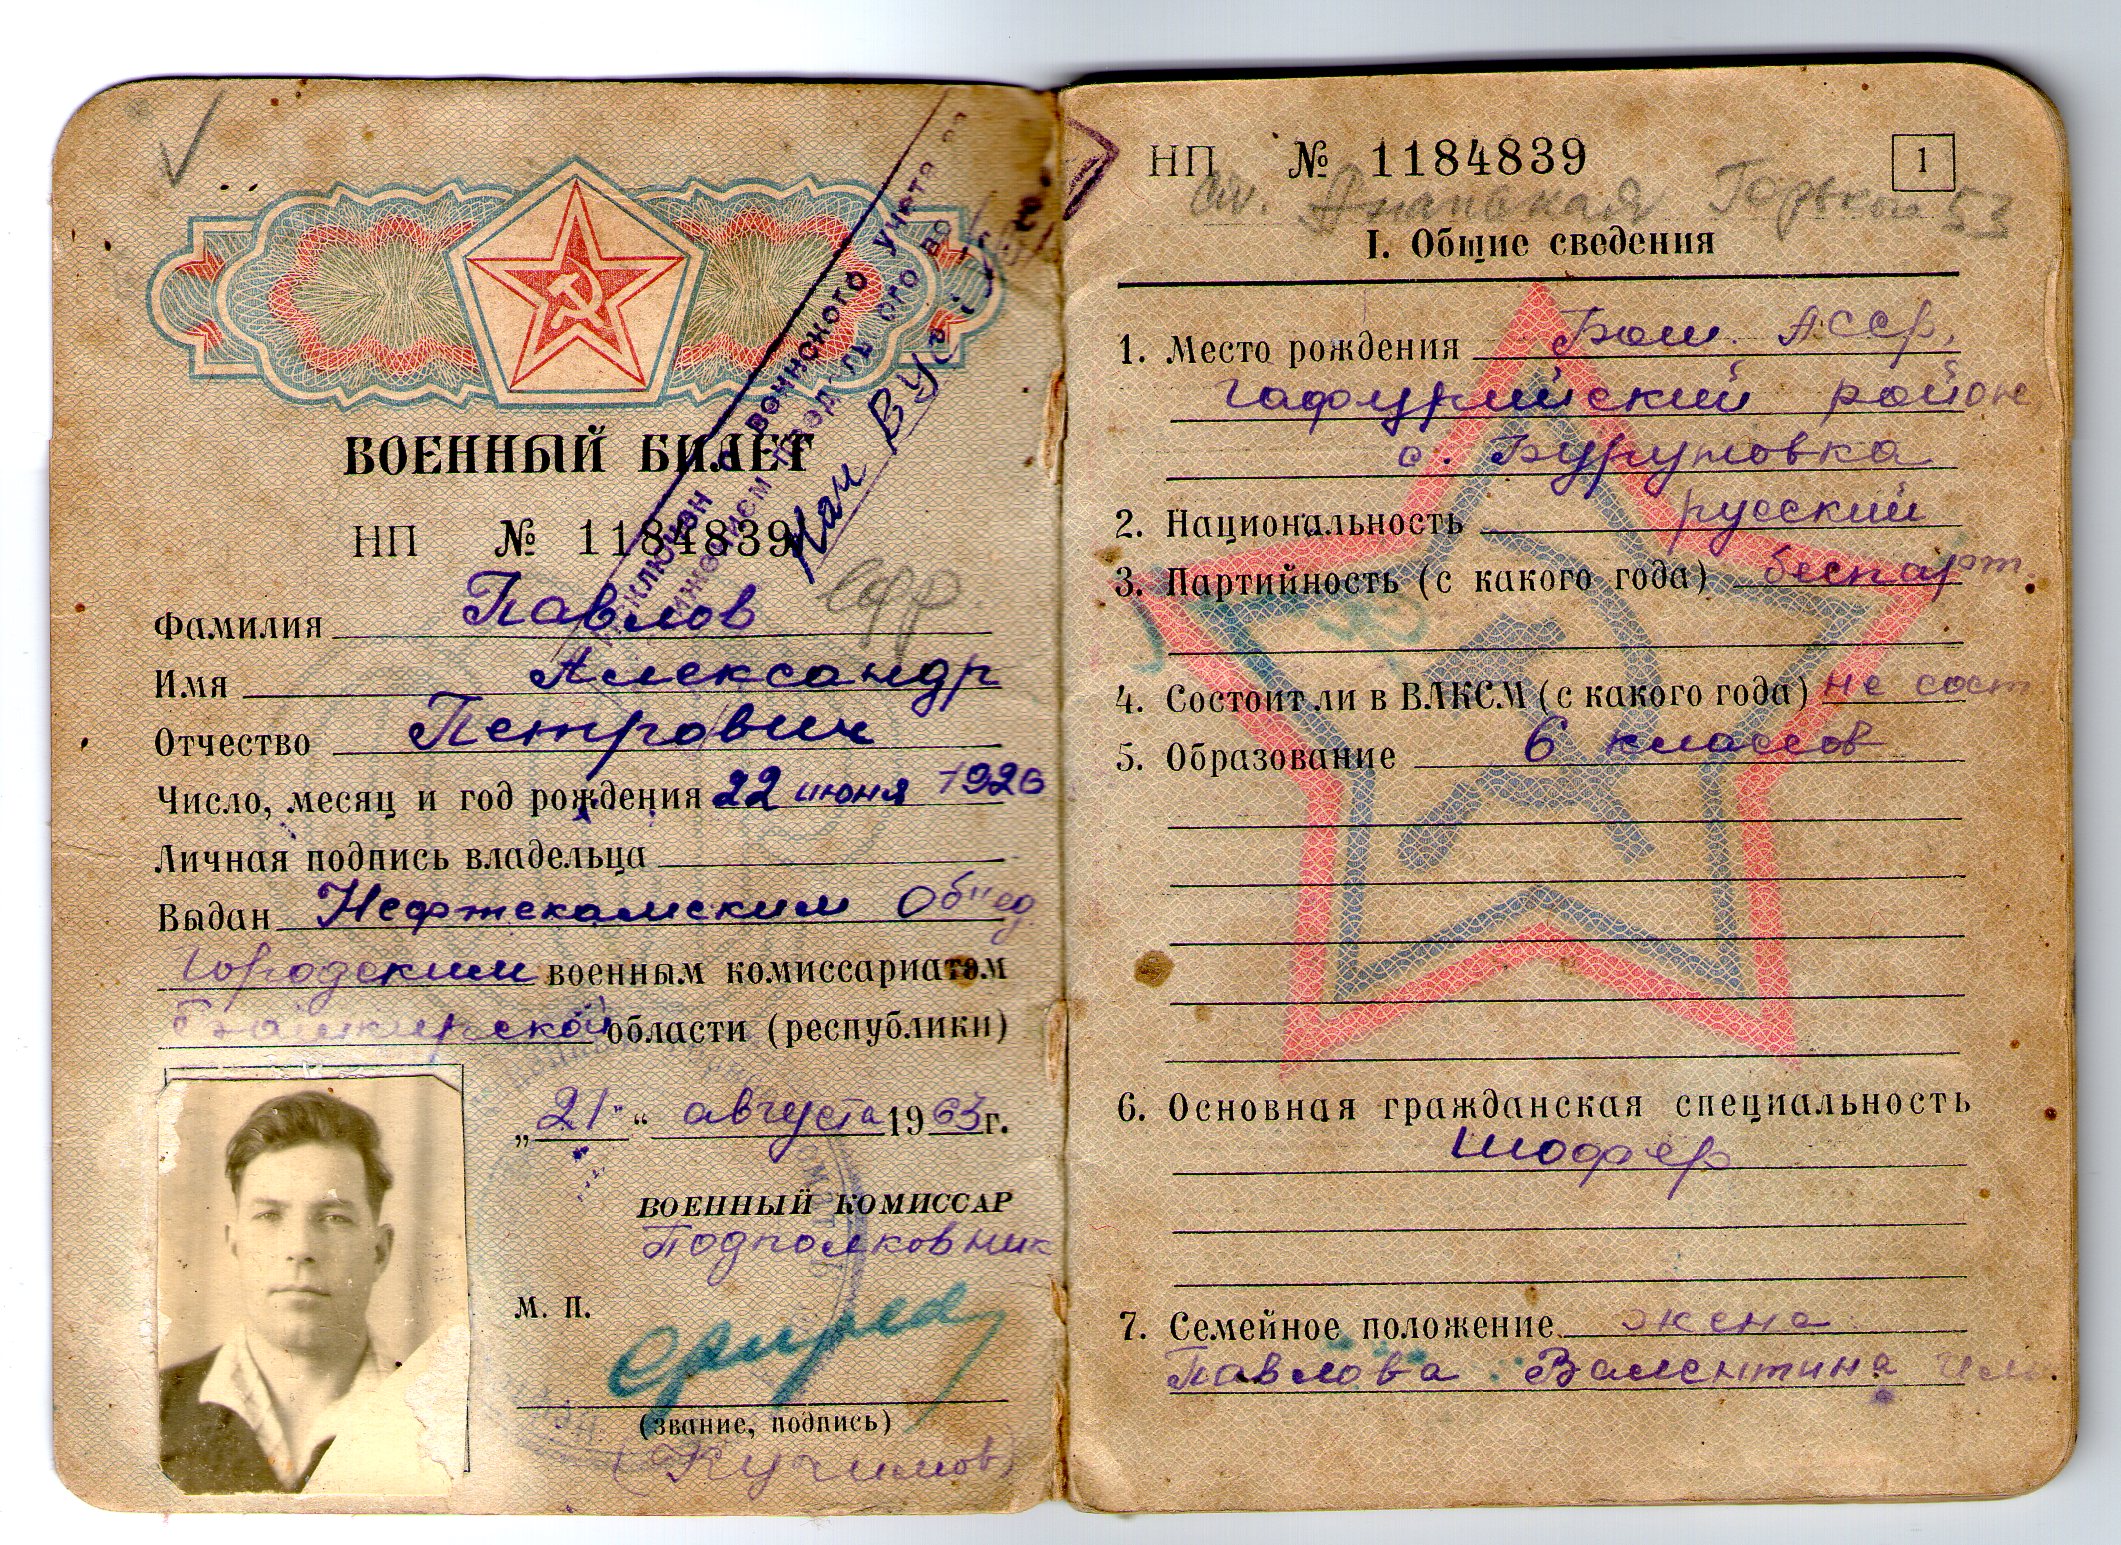 ВОЕННЫЙ БИЛЕТ
НП № 1184839
исключен с воинского учета
Фамилия Павлов
Имя Александр
Отчество Петрович
Число, месяц и год рождения 22 июня 1926
Личная подпись владельца
Выдан Нефтекамским Объед
городским военным комиссариатом
Башкирской области (республики)
„21“ августа 1963 г.
ВОЕННЫЙ КОМИССАР
Подполковник
М. П.
(звание, подпись)
НП № 1184839
1
53
I. Общие сведения
1. Место рождения Баш. АССР,
Гафурийский район
с. Буруновка
2. Национальность русский
3. Партийность (с какого года) беспарт.
4. Состоит ли в ВЛКСМ (с какого года) не сост
5. Образование 6 классов
6. Основная гражданская специальность
Шофер
7. Семейное положение жена
Павлова Валентина